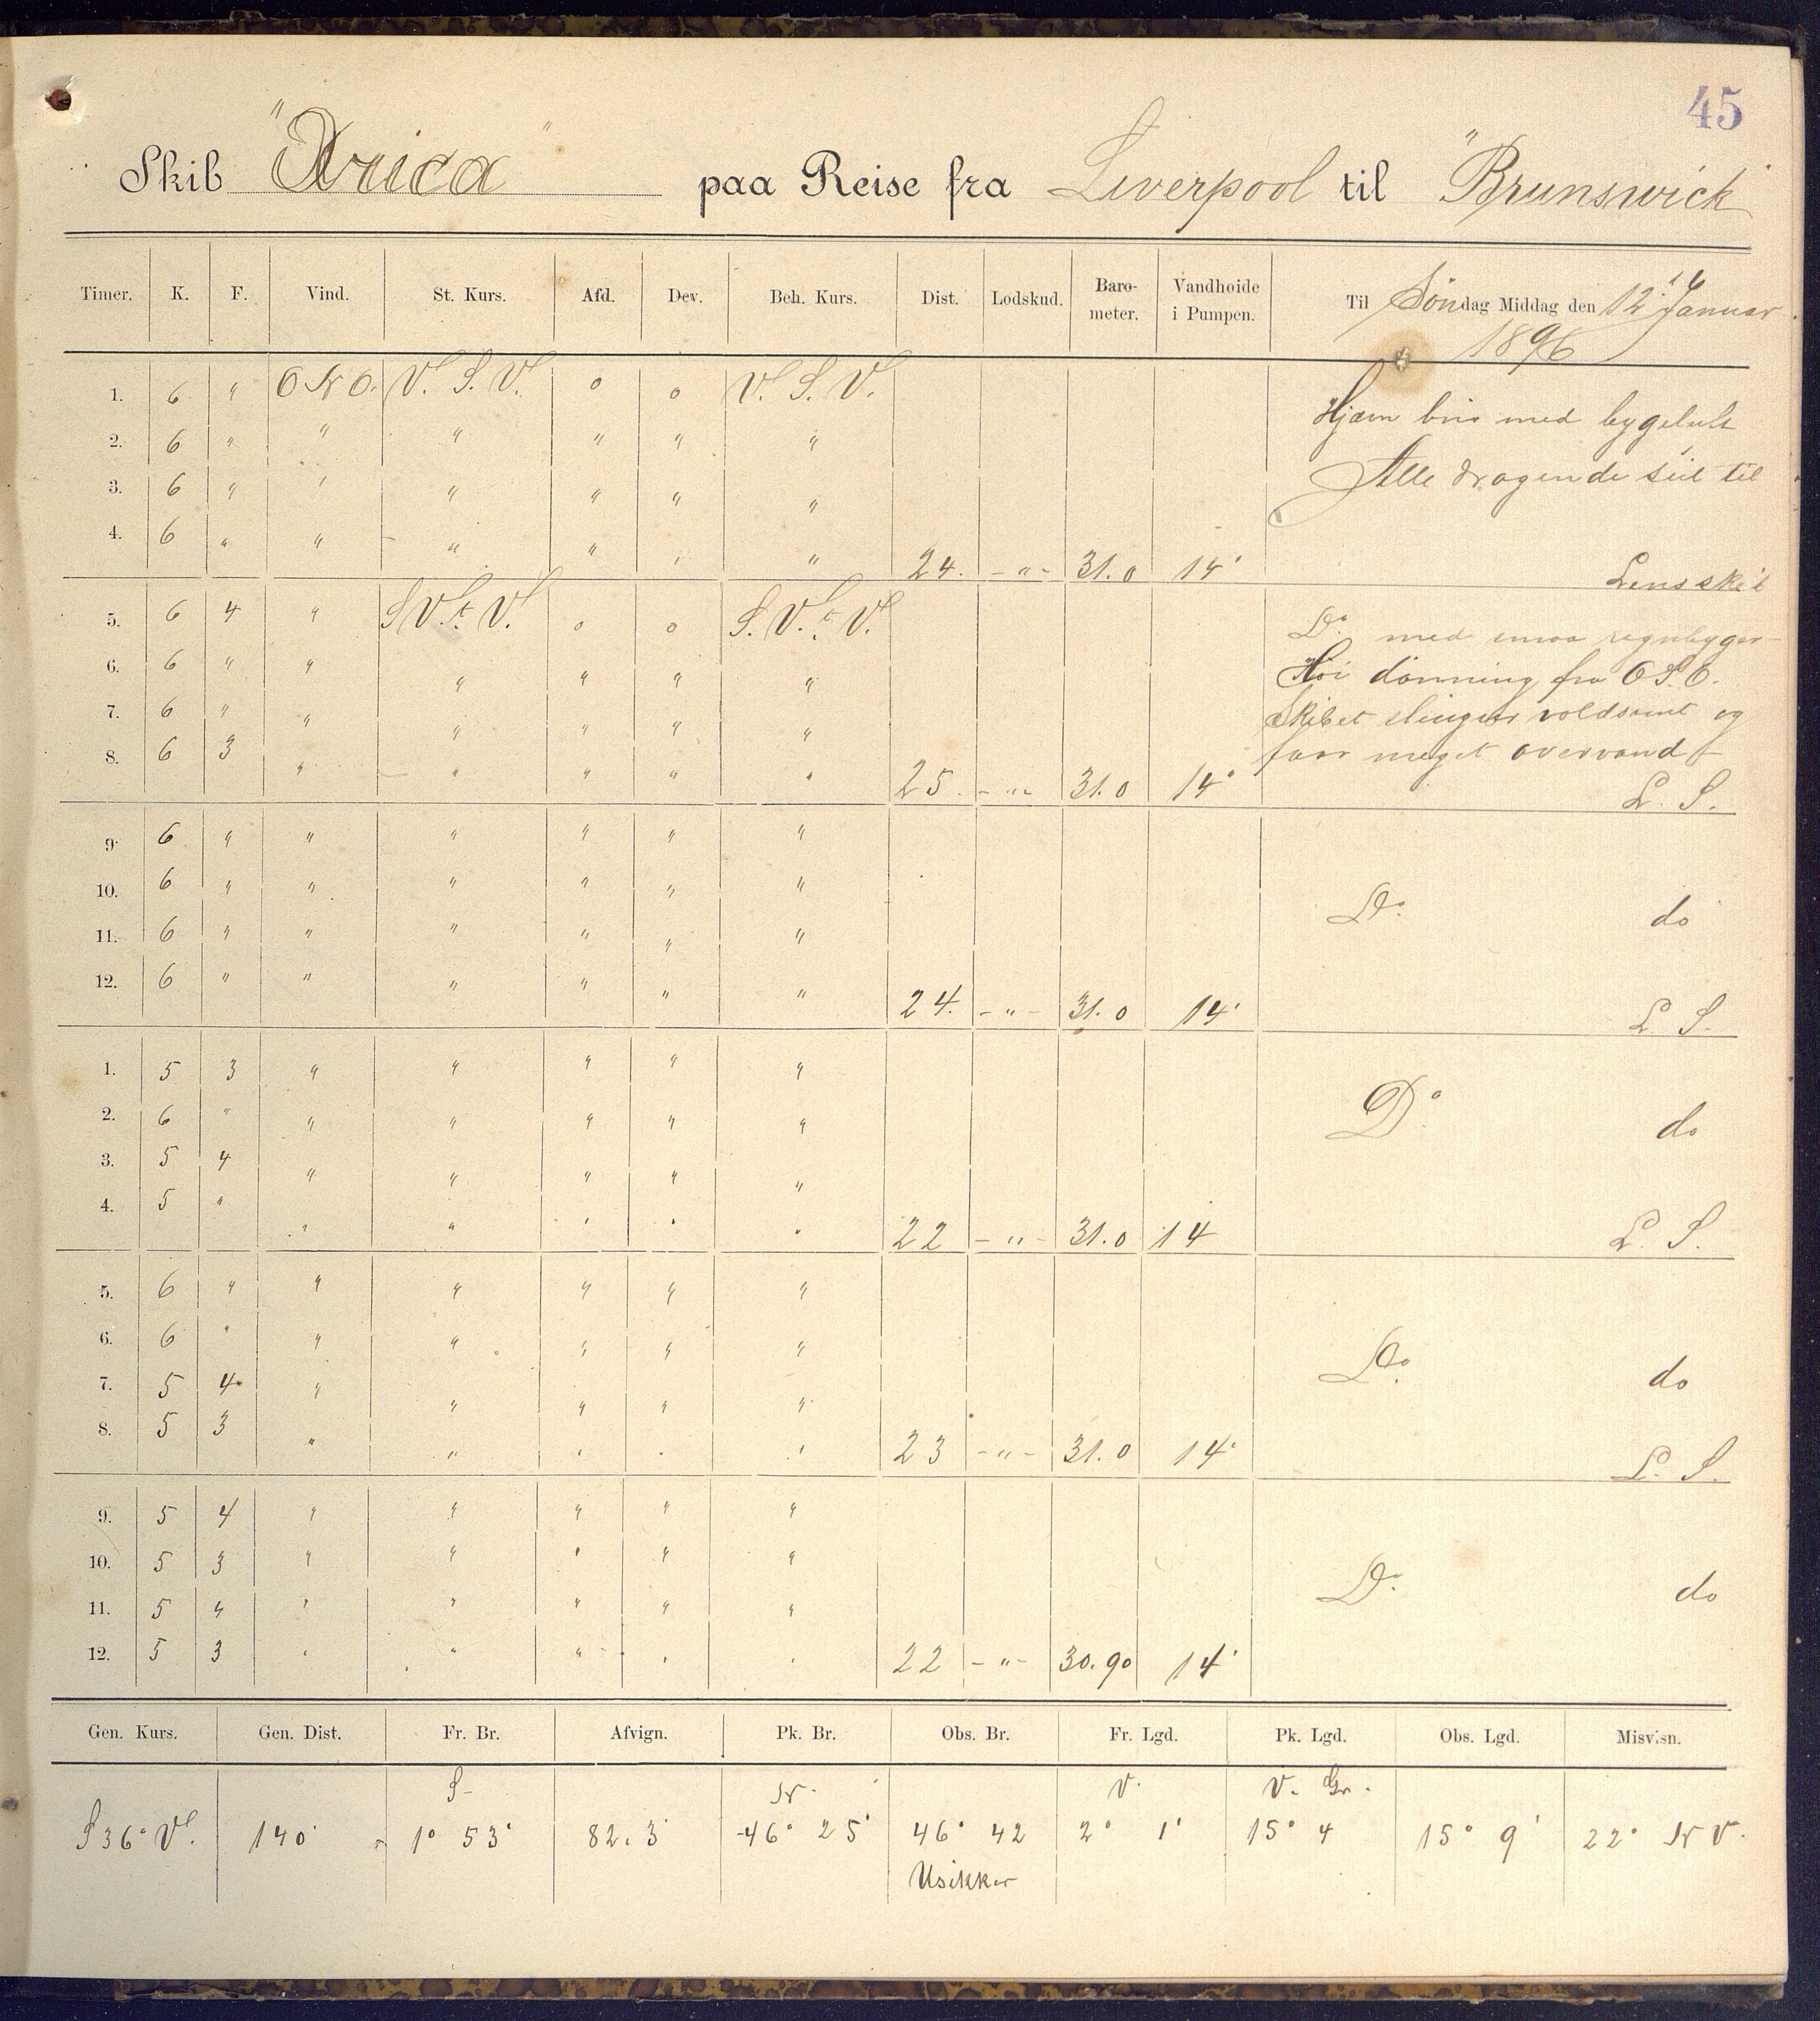 45
Skib "Arica" paa Reise fra Liverpool til "Brunswick"
Timer. K. F. Vind. St. Kurs. Afd. Dev. Beh. Kurs. Dist. Lodskud. Barometer. Vandhoide i Pumpen. Til Søndag Middag den 12te Januar
1896
1. 6 " O N O. V. S. V. o o V. S. V. Hjæm bris med bygeluft
2. 6 " " " " " "
3. 6 " " " " " " Alle dragende seil til
4. 6 " " " " " " 24. - " - 31.0 14' Lensskib
5. 6 4 " S V. t. V. o o S. V. t. V. Do. med smaa regnbyger
6. 6 " " " " " " Høi dønning fra O S. O.
7. 6 " " " " " " Skibet slinger voldsomt og
8. 6 3 " " " " " 25. - " - 31.0 14" faar meget overvand
L. S.
9. 6 " " " " " "
10. 6 " " " " " " Do. do
11. 6 " " " " " "
12. 6 " " " " " " 24. - " - 31.0 14' L. S.
1. 5 3 " " " " "
2. 6 " " " " " " Do. do
3. 5 4 " " " " "
4. 5 " " " " " " 22 - " - 31.0 14 L. S.
5. 6 " " " " " "
6. 6 " " " " " " Do. do
7. 5 4 " " " " "
8. 5 3 " " " " " 23 - " - 31.0 14' L. S.
9. 5 4 " " " " "
10. 5 3 " " " " " Do. do
11. 5 4 " " " " "
12. 5 3 " " " " " 22 - " - 30.90 14'
Gen. Kurs. Gen. Dist. Fr. Br. Afvign. Pk. Br. Obs. Br. Fr. Lgd. Pk. Lgd. Obs. Lgd. Misvisn.
S N. V. V. Gr.
S 36° V. 140' 1° 53' 82.3 46° 25' 46° 42 2° 1' 15° 4 15° 9' 22° N V.
Usikker